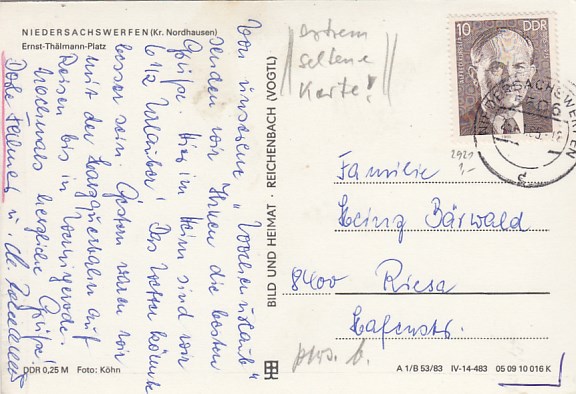 NIEDERSACHSWERFEN (Kr. Nordhausen)
Ernst-Thälmann-Platz
Von unserem „Wochenurlaub“
senden wir Ihnen die besten
Grüße. Hier im Heim sind wir
6 1/2 Urlauber! Das Wetter könnte
besser sein. Gestern waren wir
mit der Harzquerbahn auf
Reisen bis in Wernigerode.
Nochmals herzliche Grüße!
u.
DDR 0,25 M Foto: Köhn
BILD UND HEIMAT · REICHENBACH (VOGTL)
extrem
seltene
Karte!
10 DDR
NIEDERSACHSWERFEN
2921
1,-
Familie
Heinz Bärwald
8400 Riesa
Hafenstr.
A 1/B 53/83 IV-14-483 05 09 10 016 K